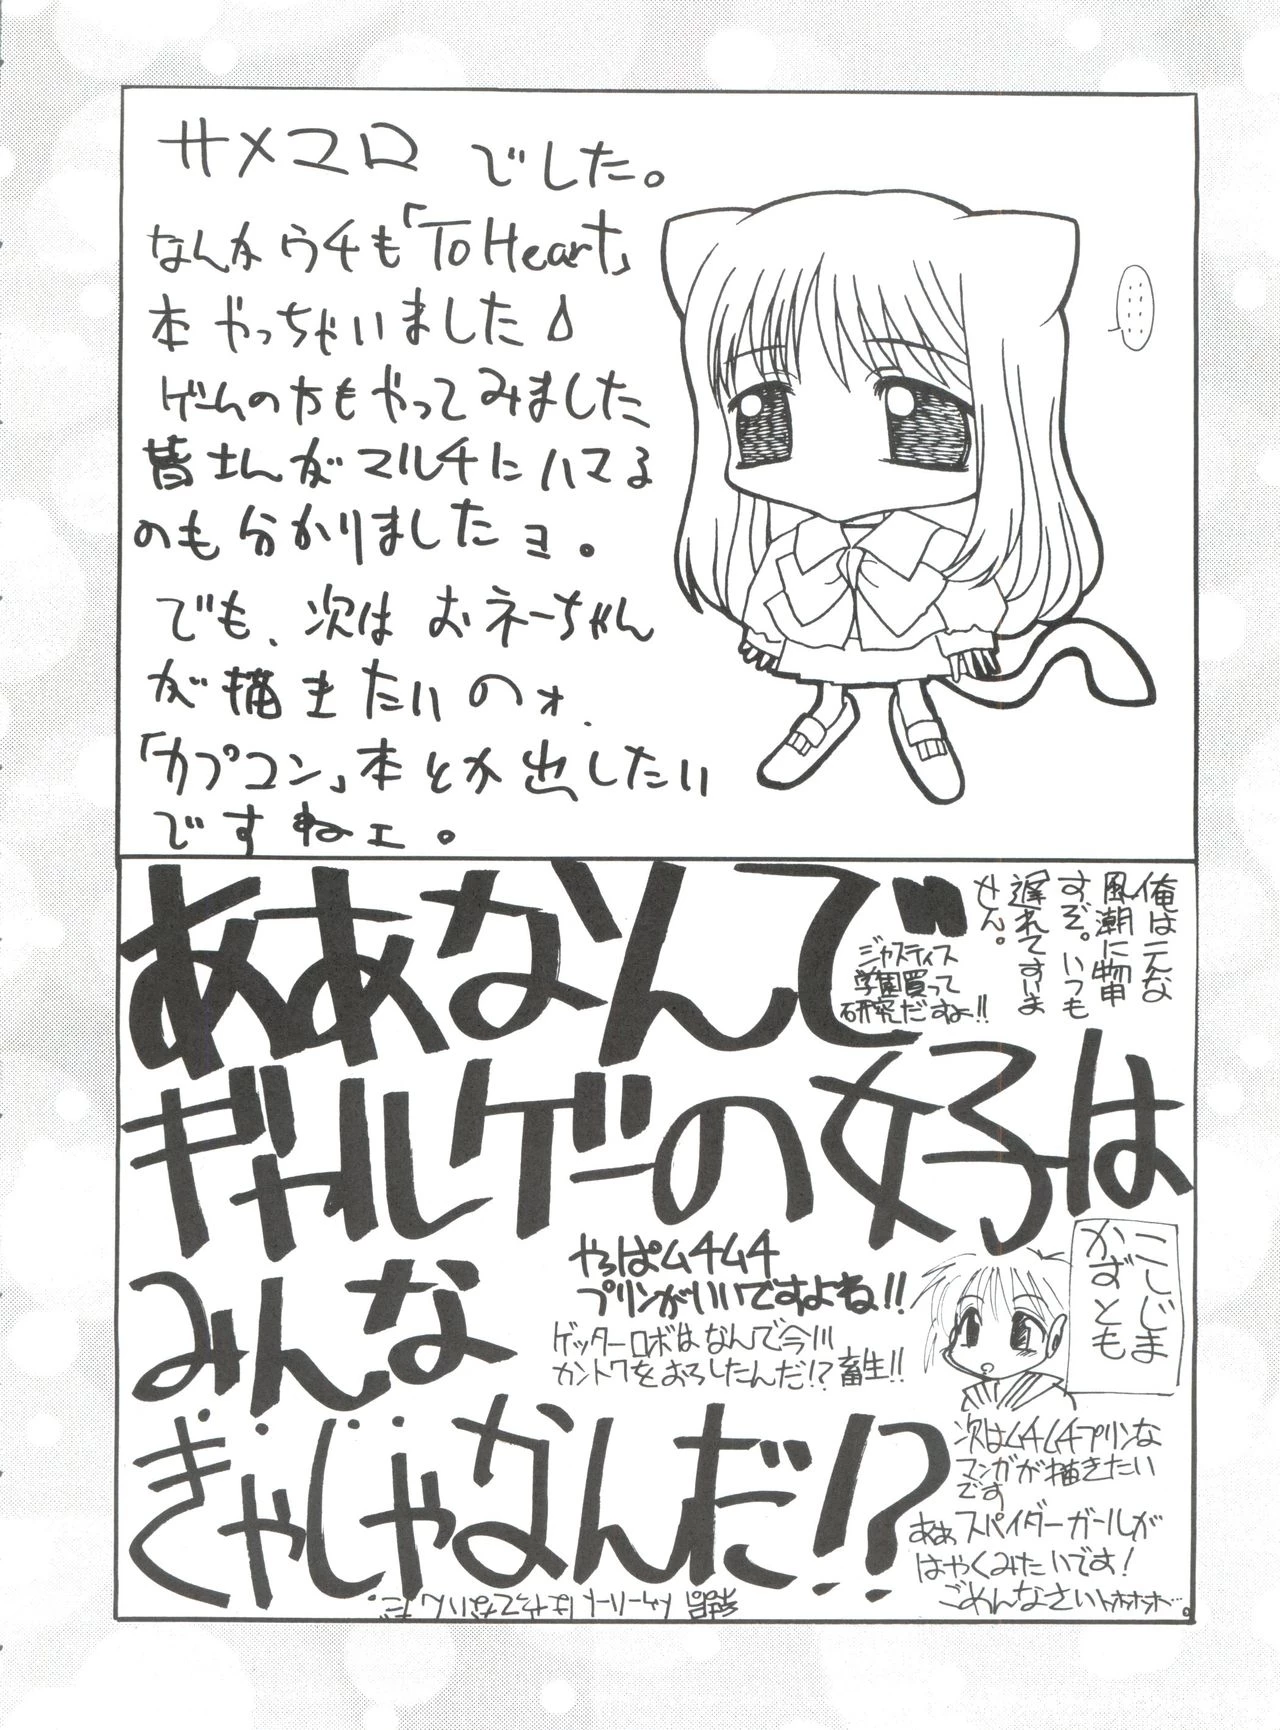 サメマロ でした。
なんかウチも「To Heart」
本やっちゃいました
ゲームの方もやってみました
皆さんがマルチにハマる
のも分かりましたョ。
でも、次は おネーちゃん
が描きたいのォ.
「カプコン」本とか出したい
ですねェ。
ああなんで
俺はこんな
風潮に物申
すぞ。いつも
遅れてすいま
せん。
ジャスティス
学園買って
研究だすよ!!
ギャルゲーの女子は
みんな
やっぱムチムチ
プリンがいいですよね!!
ゲッターロボはなんで今川
カントクをおろしたんだ!?畜生!!
こじま
かずとも
ぎゃじゃなんだ!?
次はムチムチプリンな
マンガが描きたい
です
ああスパイダーガールが
はやくみたいです!
ごめんなさいトホホホ…。
はやってないんだ。